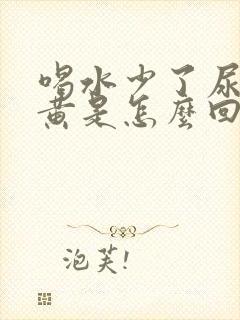 喝水少了尿
黄是怎麼回
泡芙!